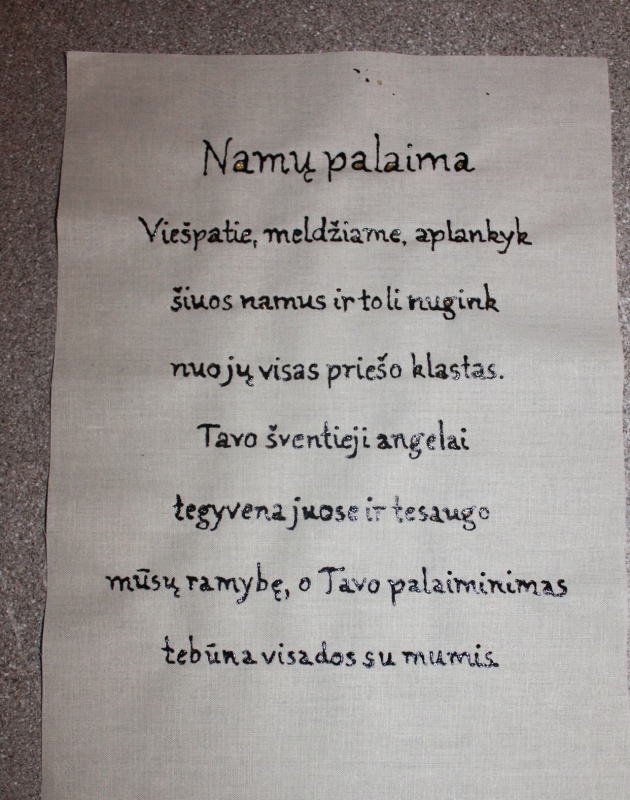 Namų palaima
Viešpatie, meldžiame, aplankyk
šiuos namus ir toli nugink
nuo jų visas priešo klastas.
Tavo šventieji angelai
tegyvena juose ir tesaugo
mūsų ramybę, o Tavo palaiminimas
tebūna visados su mumis.